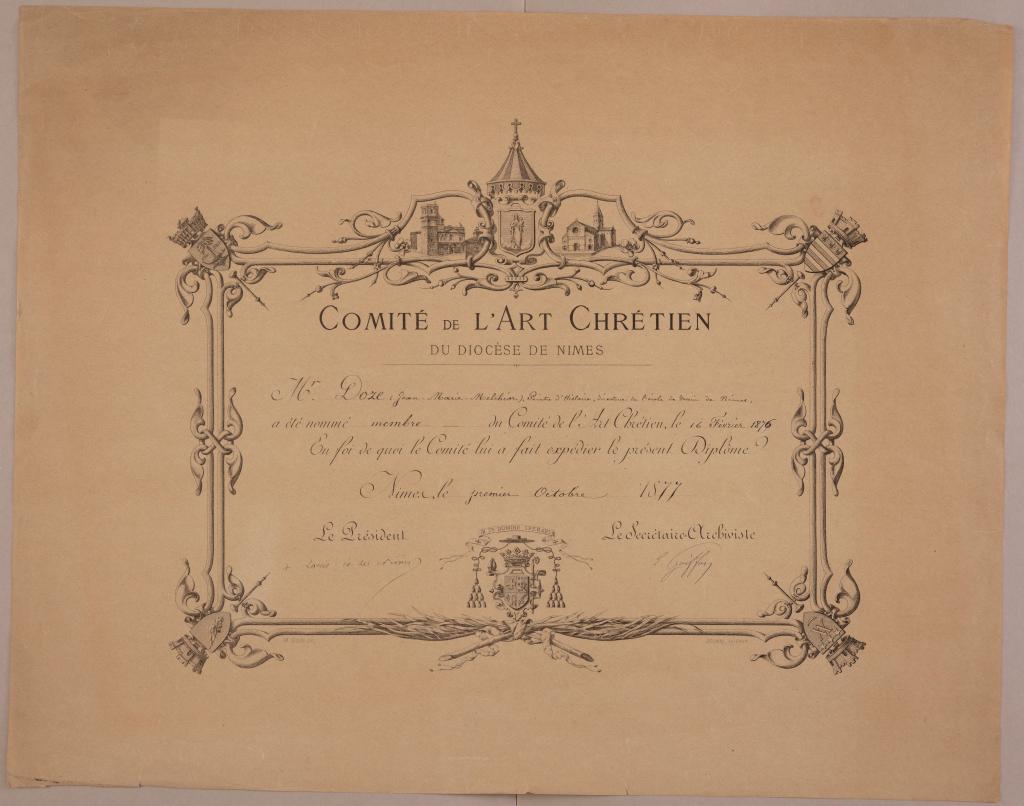 COMITÉ DE L'ART CHRÉTIEN
DU DIOCÈSE DE NIMES
Mr Doze (Jean-Marie-Melchior), Peintre d'histoire, directeur de l'école de dessin de Nimes,
a été nommé membre du Comité de l'Art Chrétien, le 16 Février 1876
En foi de quoi le Comité lui a fait expédier le présent Diplôme
Nimes, le premier Octobre 1877
Le Président
Le Secrétaire-Archiviste
+ Louis év. de Nimes
IN TE DOMINE SPERAVI